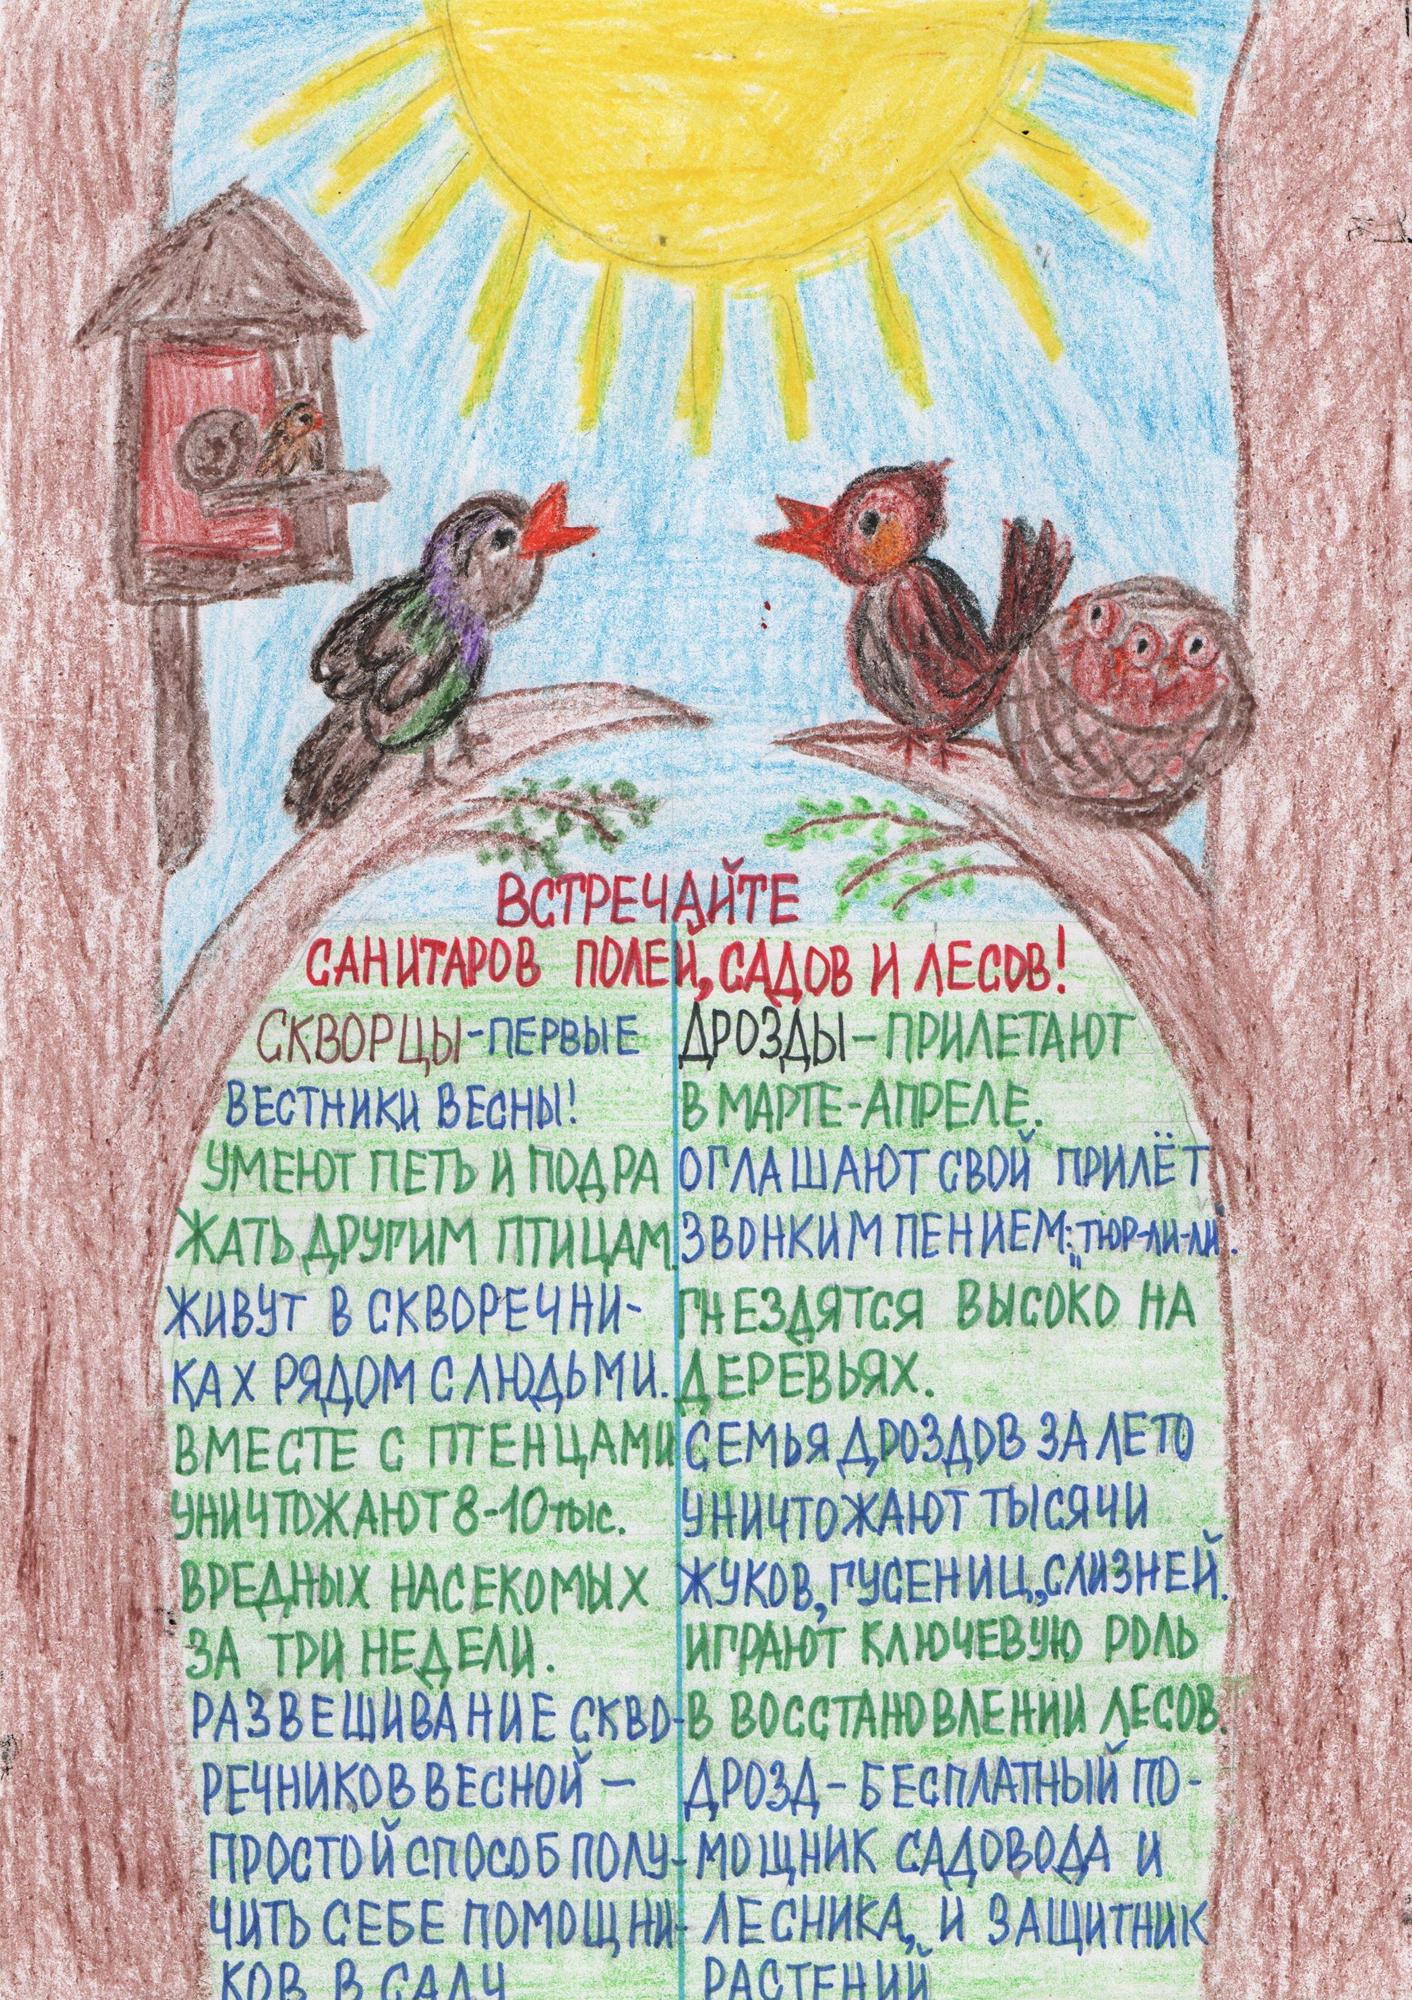 ВСТРЕЧАЙТЕ
САНИТАРОВ ПОЛЕЙ, САДОВ И ЛЕСОВ!
СКВОРЦЫ-ПЕРВЫЕ
ВЕСТНИКИ ВЕСНЫ!
УМЕЮТ ПЕТЬ И ПОДРА
ЖАТЬ ДРУГИМ ПТИЦАМ.
ЖИВУТ В СКВОРЕЧНИ-
КАХ РЯДОМ С ЛЮДЬМИ.
ВМЕСТЕ С ПТЕНЦАМИ
УНИЧТОЖАЮТ 8-10 тыс.
ВРЕДНЫХ НАСЕКОМЫХ
ЗА ТРИ НЕДЕЛИ.
РАЗВЕШИВАНИЕ СКВО-
РЕЧНИКОВ ВЕСНОЙ –
ПРОСТОЙ СПОСОБ ПОЛУ-
ЧИТЬ СЕБЕ ПОМОЩНИ-
КОВ В САДУ
ДРОЗДЫ – ПРИЛЕТАЮТ
В МАРТЕ-АПРЕЛЕ.
ОГЛАШАЮТ СВОЙ ПРИЛЁТ
ЗВОНКИМ ПЕНИЕМ: „ТЮР-ЛИ-ЛИ".
ГНЕЗДЯТСЯ ВЫСОКО НА
ДЕРЕВЬЯХ.
СЕМЬЯ ДРОЗДОВ ЗА ЛЕТО
УНИЧТОЖАЮТ ТЫСЯЧИ
ЖУКОВ, ГУСЕНИЦ, СЛИЗНЕЙ.
ИГРАЮТ КЛЮЧЕВУЮ РОЛЬ
В ВОССТАНОВЛЕНИИ ЛЕСОВ.
ДРОЗД – БЕСПЛАТНЫЙ ПО-
МОЩНИК САДОВОДА И
ЛЕСНИКА, И ЗАЩИТНИК
РАСТЕНИЙ